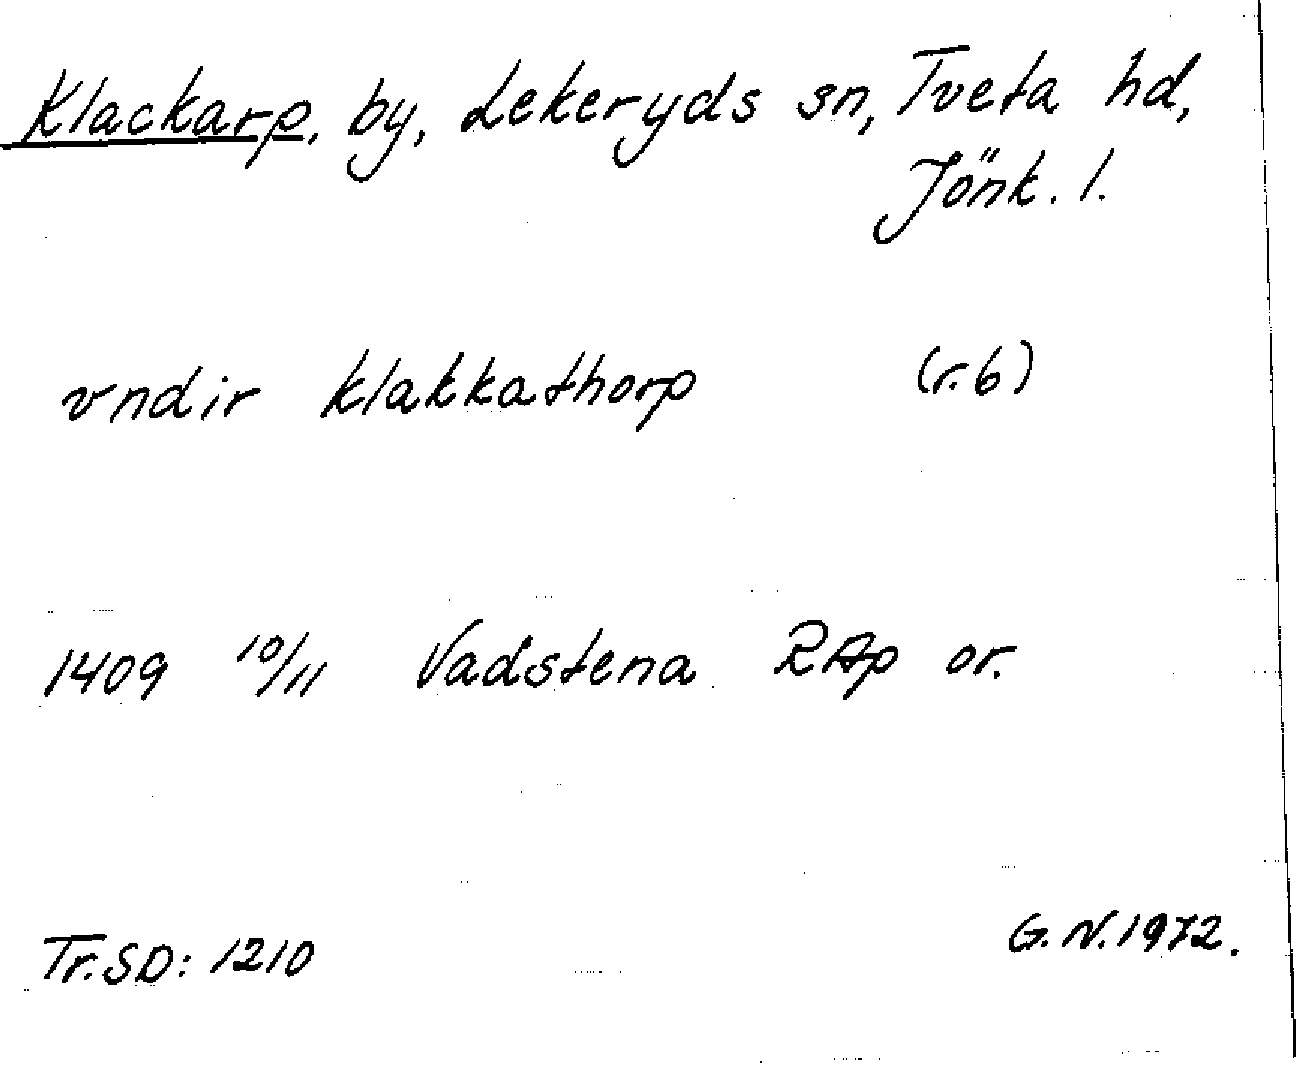 Klackarp, by, Lekeryds sn, Tveta hd,
Jönk. l.
vndir klakkathorp (r.6)
1409 10/11 Vadstena RAp or.
Tr. SD: 1210
G. N. 1972.